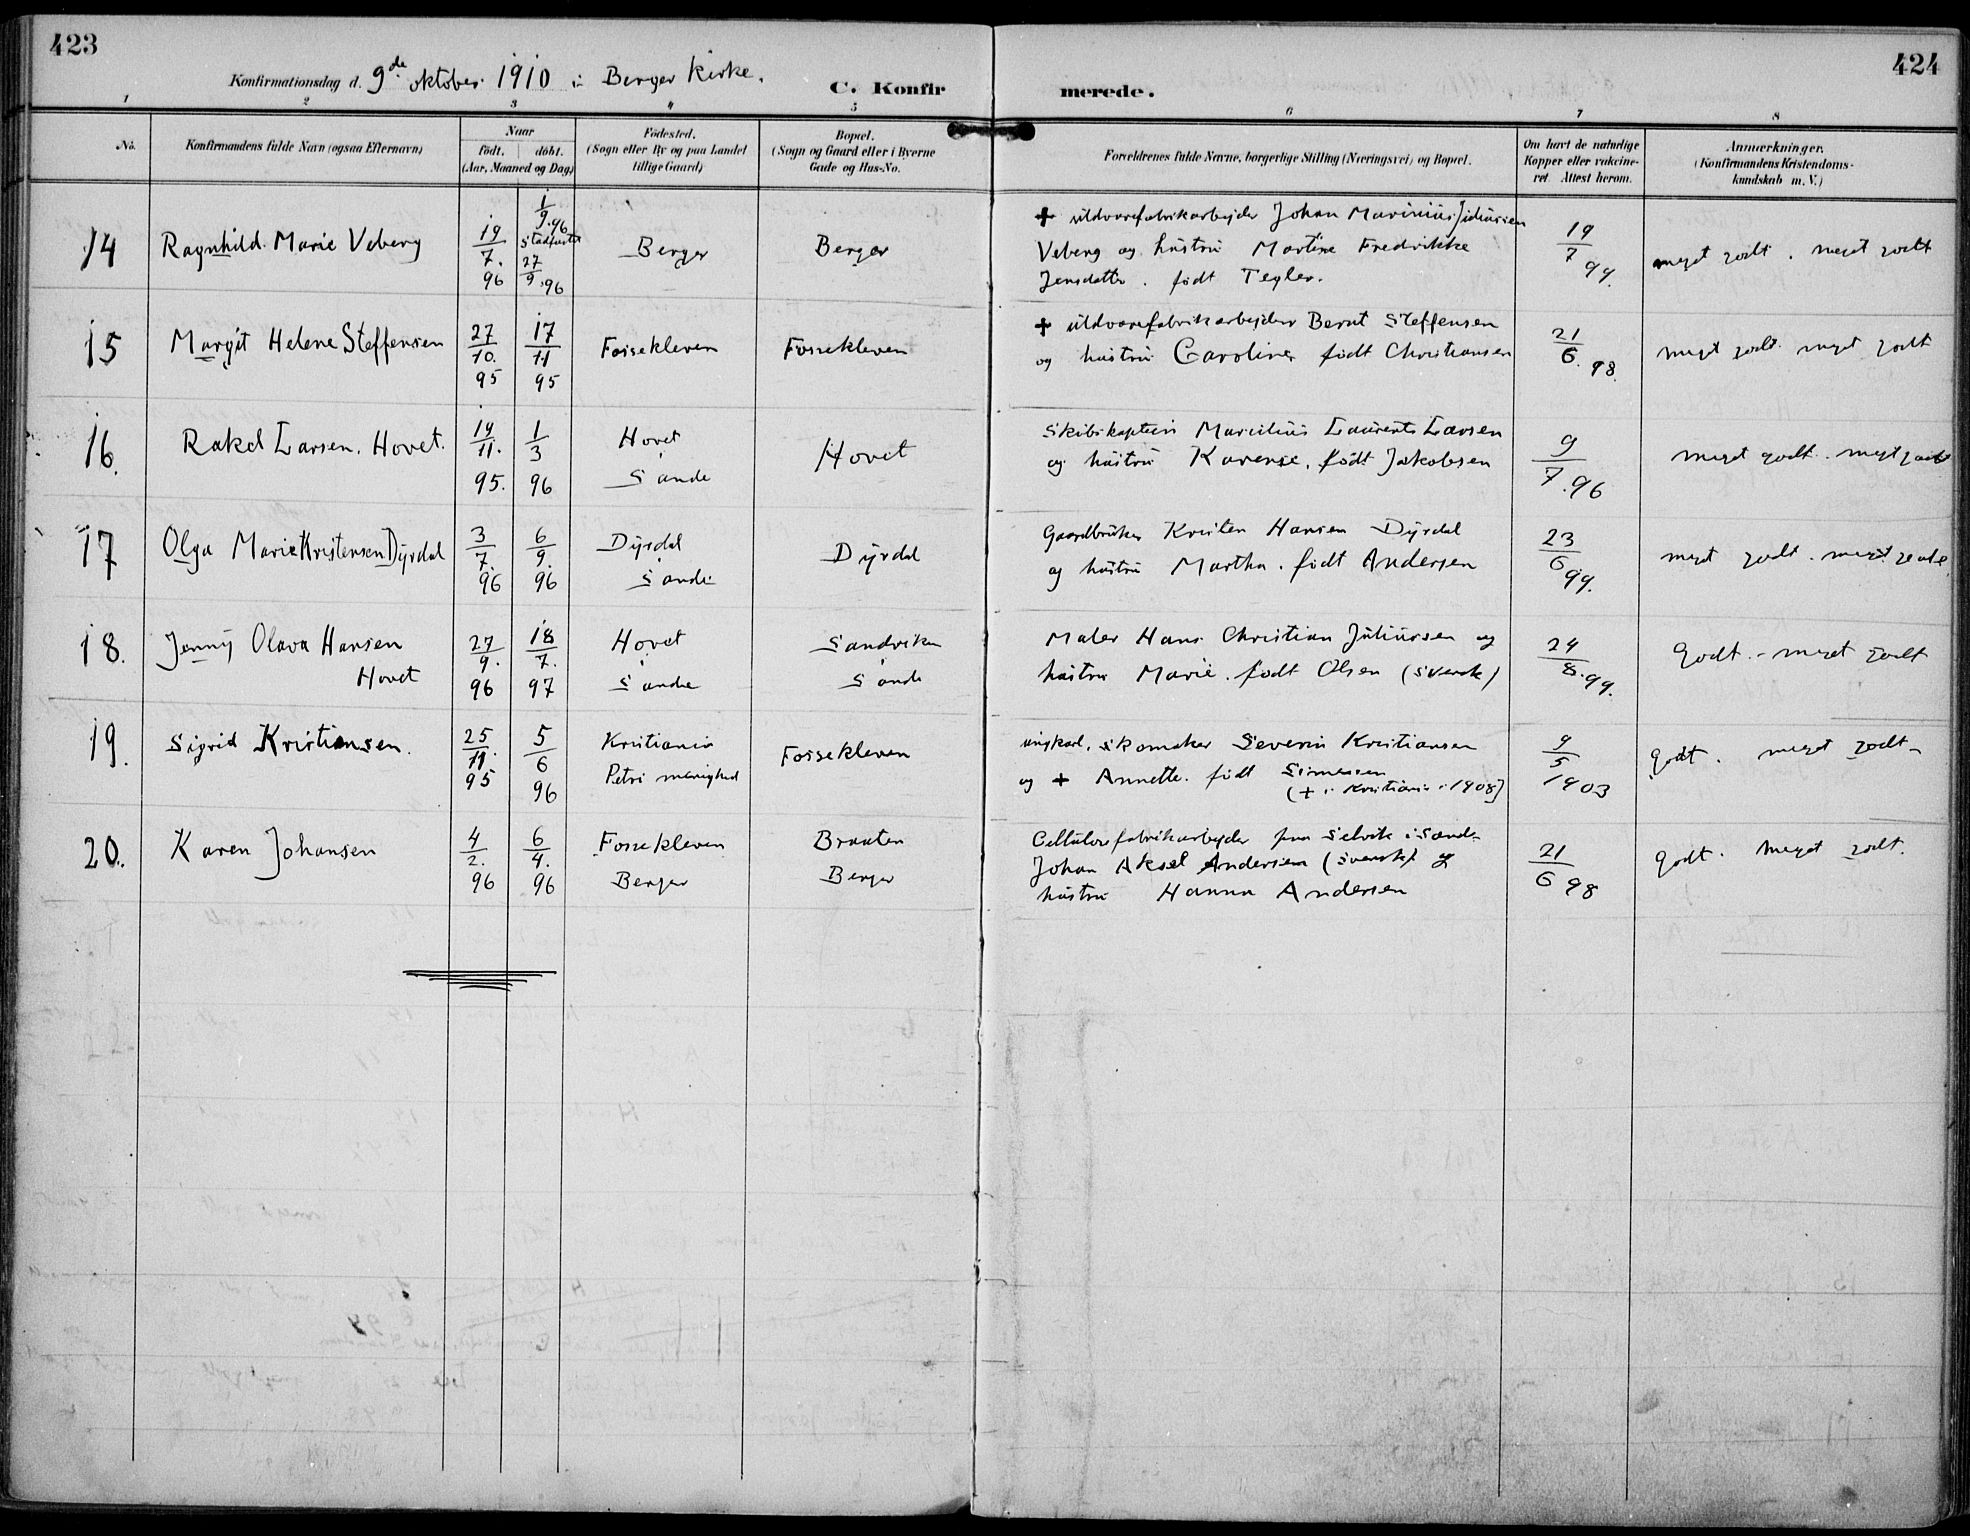 423
424
Konfirmationsdag d. 9de oktober 1910 i Berger kirke.
C. Konfirmerede.
1 2 3 4 5 6 7 8
No.
Konfirmandens fulde Navn (ogsaa Efternavn)
Naar
født. døbt.
(Aar, Maaned og Dag)
Fødested.
(Sogn eller By og paa Landet
tillige Gaard)
Bopæl.
(Sogn og Gaard eller i Byerne
Gade og Hus-No.
Forældrenes fulde Navne, borgerlige Stilling (Næringsvei) og Bopæl.
Om havt de naturlige
Kopper eller vakcine-
ret. Attest herom.
Anmærkninger.
(Konfirmandens Kristendoms-
kundskab m. V.)
14 Ragnhild Marie Veberg
19/7. 96
1/9.96 stadfæstet 27/9.96
Berger
Berger
+ uldvarefabrikarbejder Johan Marinius Juliussen
Veberg og hustru Martine Fredrikke
Jensdatter. født Tegler.
19/7 99.
meget godt. meget godt
15 Margit Helene Steffensen
27/10. 95
17/11 95
Fossekleven
Fossekleven
+ uldvarefabrikarbejder Bernt Steffensen
og hustru Caroline født Christiansen
21/6. 98.
meget godt. meget godt
16. Rakel Larsen. Hovet.
19/11. 95.
1/3 96
Hovet
Sande
Hovet
Skibskaptein Marcilius Laurents Larsen
og hustru Karense. født Jakobsen
9/7.96
meget godt. meget godt
17 Olga Marie Kristensen Dyrdal
3/7. 96
6/9. 96
Dyrdal
Sande
Dyrdal
Gaardbruker Kristen Hansen Dyrdal
og hustru Martha. født Andersen
23/6 99.
meget godt. meget godt.
18. Jenny Olava Hansen
Hovet
27/9. 96
18/7. 97
Hovet
Sande
Sandviken
Sande
Maler Hans Christian Juliussen og
hustru Marie. født Olsen (svensk)
24/8.99.
Godt. - meget godt
19. Sigrid Kristiansen.
25/11. 95
5/6 96
Kristiania
Petri menighed
Fossekleven
ungkarl. skomaker Severin Kristiansen
og + Annette. født Simensen
(+ i Kristiania i 1908)
9/5 1903
godt. meget godt-
20. Karen Johansen
4/2. 96
6/4. 96
Fossekleven
Berger
Braaten
Berger
Cellulosefabrikarbejder paa Selvik i Sande
Johan Aksel Andersen (svensk) og
hustru Hanna Andersen
21/6 98
godt. Meget godt.